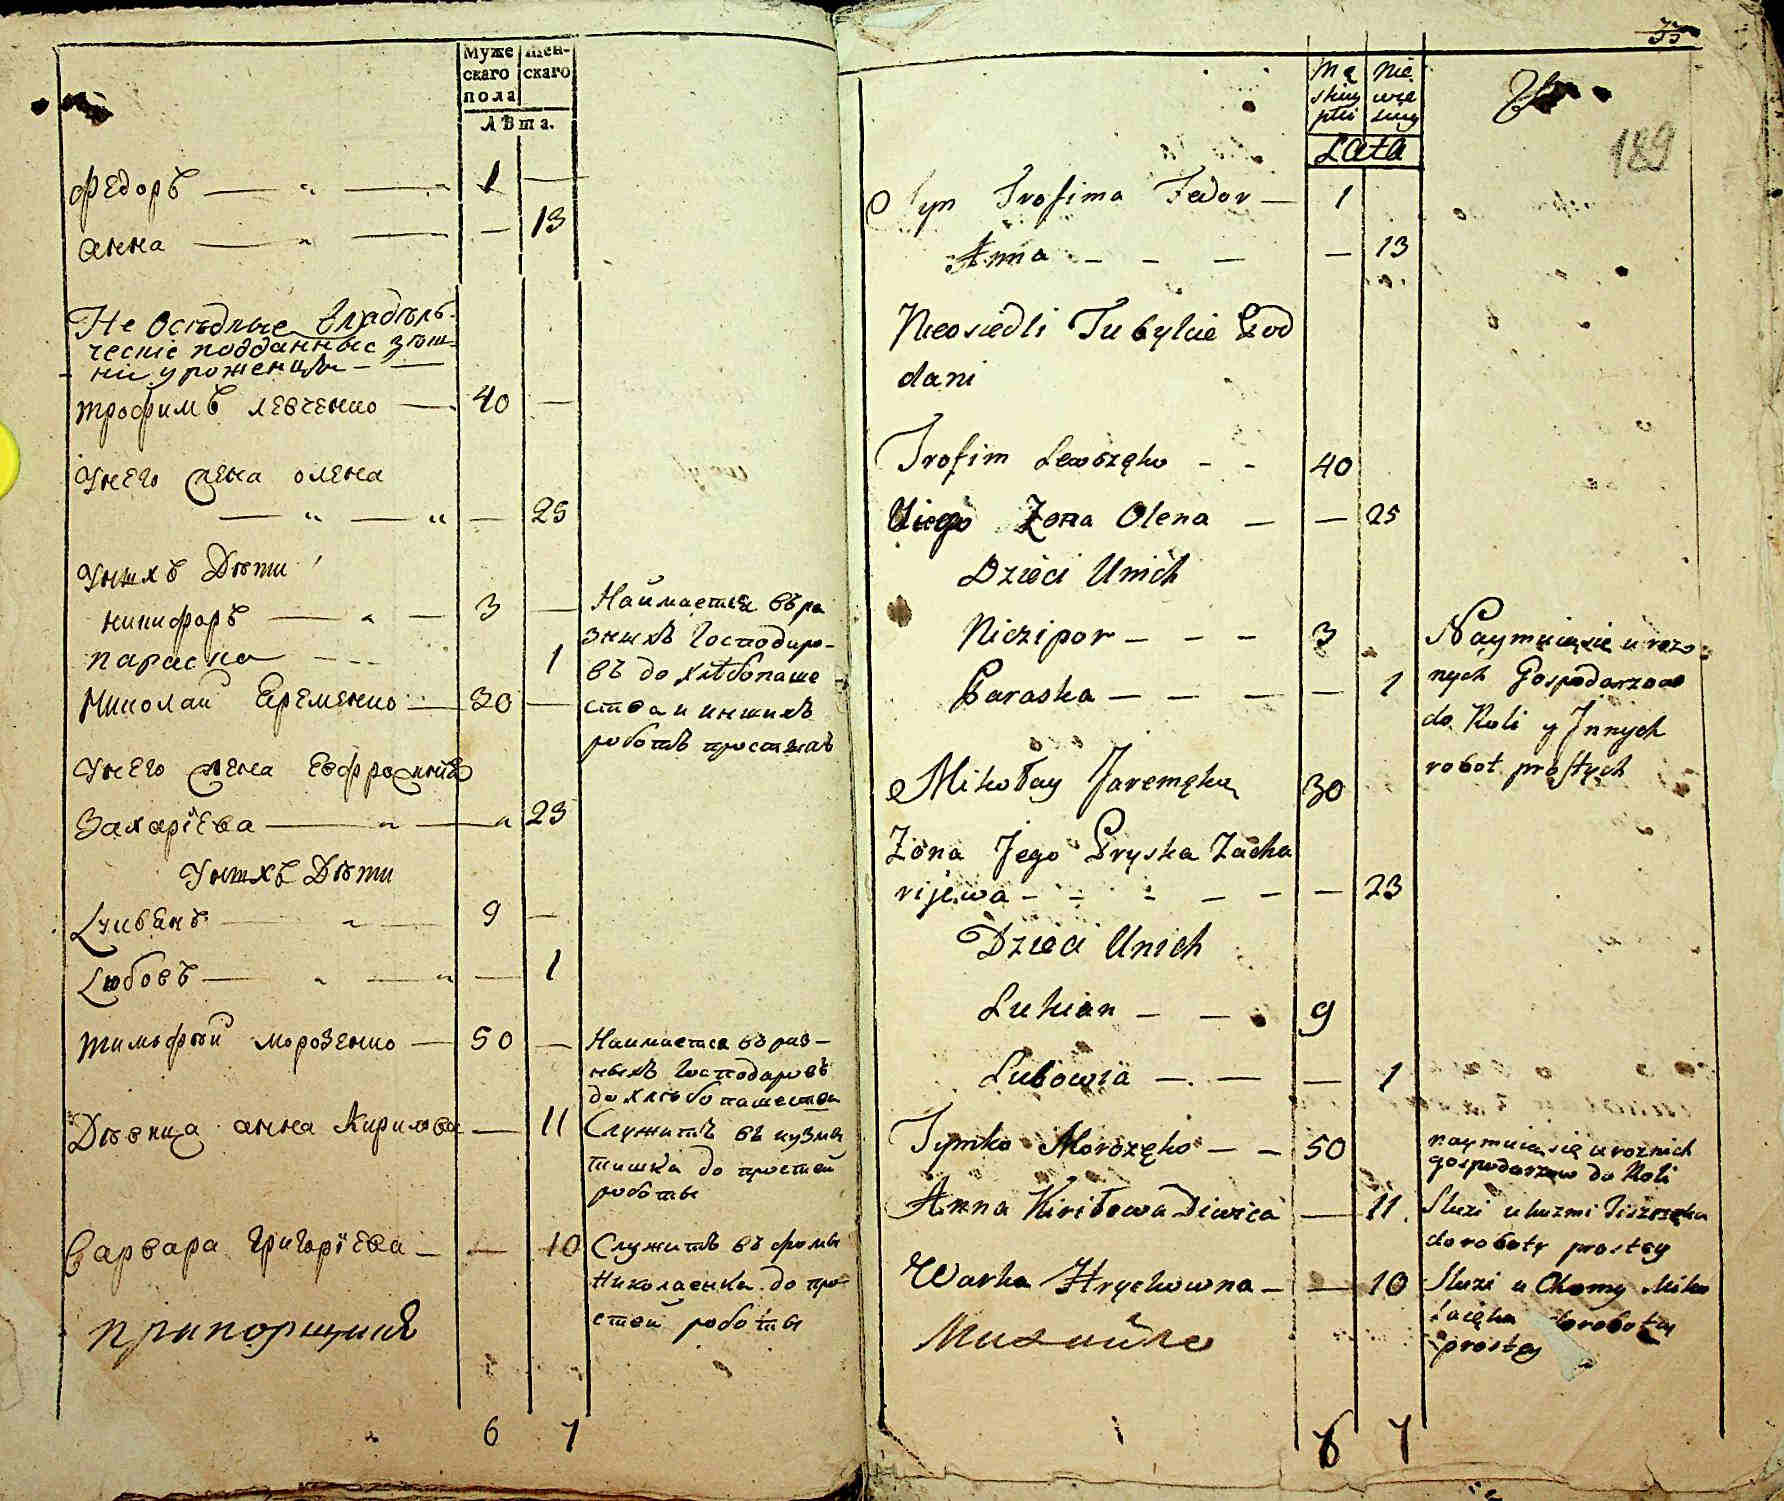 Муже Жен-
скаго скаго
пола
Лѣта.
Федоръ — 1 —
анна — — 13
Не Осѣдлые Владѣль-
ческіе подданные здѣш-
ніи уроженцы
трофимъ левченко — 40 —
Унего жена олена
— — 25
Унихъ Дѣти
ничифоръ — 3 —
параска 1
Николай Еременко — 30 —
Наимается въ ра
зныхъ Господаро-
въ до хлѣбопаше
ства и иншихъ
роботъ простыхъ
Унего жена Евфросинія
Захаріева — 23
Унихъ Дѣти
Лукіянъ — 9 —
Любовъ — — 1
тимофѣй морозенко — 50 —
Наимается въ раз-
ныхъ Господаровъ
до хлѣбопашества
Дѣвица анна Кирилова — 11
Служитъ въ кузмы
тишка до простой
роботы
Варвара Григоріева — — 10
Служитъ въ фомы
Николаенка до про
стой роботы
прапорщикъ
6 7
33
189
Mę Nie
skiey wie
płci sciey
Lata
Syn Trofima Fedor — 1
Anna - - — — 13
Nieosiedli Tubylcie Pod
dani
Trofim Lewczęko - - 40
Uiego Zona Olena — — 25
Dzieci Unich
Niczipor - - - 3
Paraska — — — — 1
Naymuie się u rozo
nych Gospodarzow
do Roli y Innych
robot prostych
Mikołay Jaremęko 30
Zona Jego Pryska Zacha
rijewa - - - - - — 23
Dzieci Unich
Lukian — — 9
Lubowia — — — 1
Tymko Morozęko — — 50
naymuie się u roznich
gospodarzow do Roli
Anna Kiriłowa Diwica — 11
Służi u kuzmi Tiszczęka
do roboty prostey
Warka Hryckowna — — 10
Służi u Chomy Miko
łaięka do roboty
prostey
Михайло
6 7